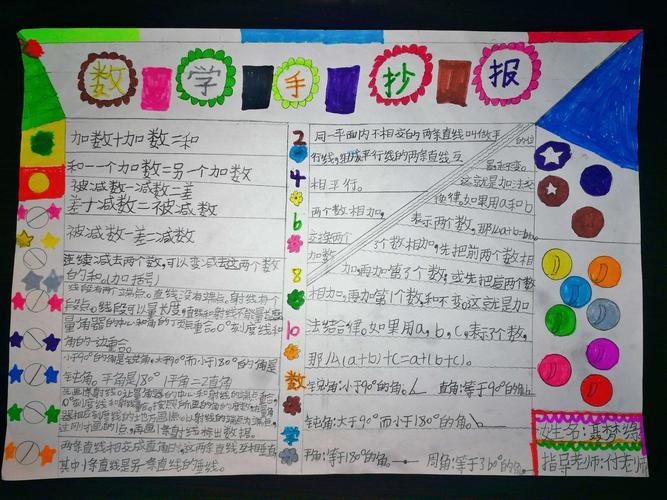 数学手抄报
加数+加数=和
和-一个加数=另一个加数
被减数-减数=差
差+减数=被减数
被减数-差=减数
连续减去两个数,可以变减去这两个数
的和。(加括号)
线段有两个端点。直线没有端点,射线有个
量角器的中心和角的顶点重合。0°刻度线和
角的一边重合。
小于90°的角是锐角。大于90°而小于180°的角是
钝角。平角是180° 1平角=2直角
两条直线相交成直角时,这两条直线互相垂直
其中1条直线是另一条直线的垂线。
2
4
6
8
10
数
学
同一平面内不相交的两条直线叫做平
行线,组成平行线的两条直线互
相平行。
两个数相加,
交换两个
加数
的位
置和不变。
这就是加法交
换律。如果用a和b
表示两个数,那么a+b=b+a
3个数相加,先把前两个数相
加,再加第3个数,或先把后两个数
相加,再加第1个数,和不变。这就是加
法结合律。如果用a,b,c,表示3个数,
那么(a+b)+c=a+(b+c)。
锐角:小于90°的角。 直角:等于90°的角
钝角:大于90°而小于180°的角。
平角:等于180°的角。 周角:等于360°的角。
姓名:聂梦缘
指导老师:付老师